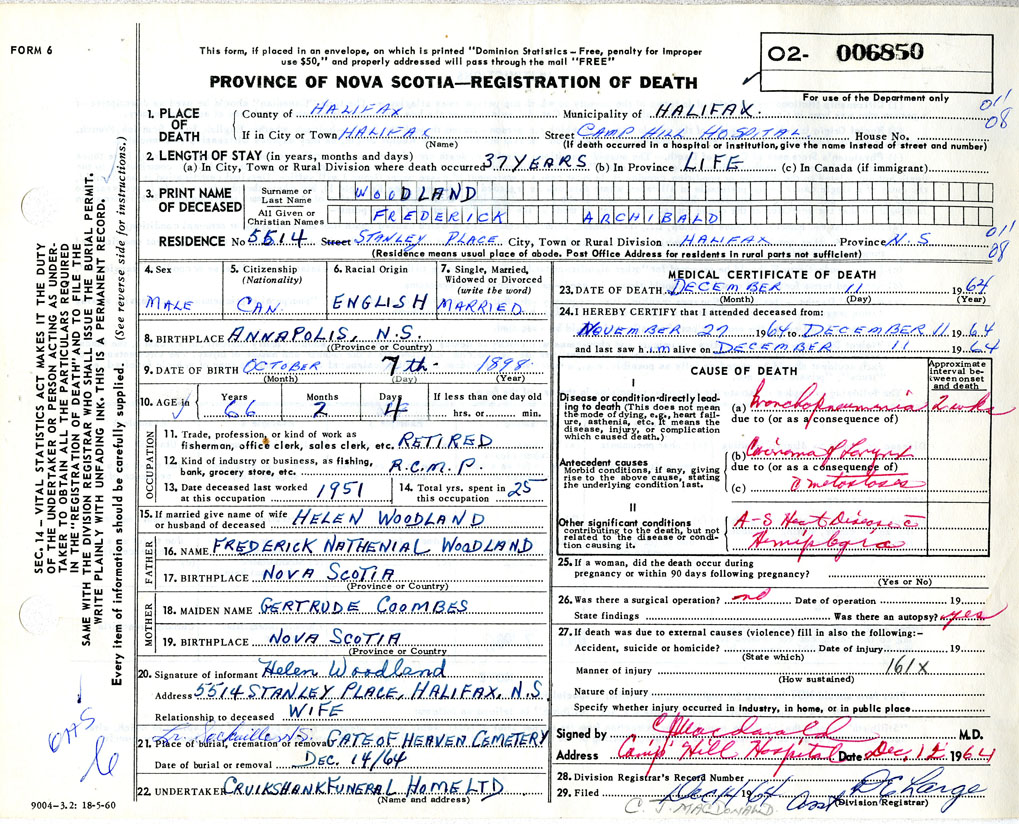 FORM 6
This form, if placed in an envelope, on which is printed "Dominion Statistics – Free, penalty for improper
use $50," and properly addressed will pass through the mail "FREE"
PROVINCE OF NOVA SCOTIA—REGISTRATION OF DEATH
O2- 006850
For use of the Department only
SEC. 14 – VITAL STATISTICS ACT MAKES IT THE DUTY
OF THE UNDERTAKER OR PERSON ACTING AS UNDER-
TAKER TO OBTAIN ALL THE PARTICULARS REQUIRED
IN THE "REGISTRATION OF DEATH" AND TO FILE THE
SAME WITH THE DIVISION REGISTRAR WHO SHALL ISSUE THE BURIAL PERMIT.
WRITE PLAINLY WITH UNFADING INK. THIS IS A PERMANENT RECORD.
Every item of information should be carefully supplied. (See reverse side for instructions.)
1. PLACE OF DEATH
County of HALIFAX Municipality of HALIFAX.
011
08
If in City or Town HALIFAX Street CAMP HILL HOSPITAL House No.
(Name) (If death occurred in a hospital or institution, give the name instead of street and number)
2. LENGTH OF STAY (in years, months and days)
(a) In City, Town or Rural Division where death occurred 37 YEARS (b) In Province LIFE (c) In Canada (if immigrant)
3. PRINT NAME OF DECEASED
Surname or Last Name WOODLAND
All Given or Christian Names FREDERICK ARCHIBALD
RESIDENCE No 5514 Street STANLEY PLACE City, Town or Rural Division HALIFAX Province N.S
011
08
(Residence means usual place of abode. Post Office Address for residents in rural parts not sufficient)
4. Sex MALE
5. Citizenship (Nationality) CAN.
6. Racial Origin ENGLISH
7. Single, Married, Widowed or Divorced (write the word) MARRIED
8. BIRTHPLACE ANNAPOLIS, N.S.
(Province or Country)
9. DATE OF BIRTH OCTOBER 7th- 1898.
(Month) (Day) (Year)
10. AGE in Years 66 Months 2 Days 4 If less than one day old hrs. or min.
OCCUPATION
11. Trade, profession, or kind of work as
fisherman, office clerk, sales clerk, etc. RETIRED
12. Kind of industry or business, as fishing,
bank, grocery store, etc. R.C.M.P.
13. Date deceased last worked at this occupation 1951
14. Total yrs. spent in this occupation 25
15. If married give name of wife or husband of deceased HELEN WOODLAND
FATHER
16. NAME FREDERICK NATHENIAL WOODLAND
17. BIRTHPLACE NOVA SCOTIA
(Province or Country)
MOTHER
18. MAIDEN NAME GERTRUDE COOMBES
19. BIRTHPLACE NOVA SCOTIA
(Province or Country)
20. Signature of informant Helen Woodland
Address 5514 STANLEY PLACE, HALIFAX, N.S
Relationship to deceased WIFE
Lr. Sackville N.S.
21. Place of burial, cremation or removal GATE OF HEAVEN CEMETERY
Date of burial or removal DEC. 14/64
22. UNDERTAKER CRUIKSHANK FUNERAL HOME LTD
(Name and address)
9004–3.2: 18-5-60
MEDICAL CERTIFICATE OF DEATH
23. DATE OF DEATH DECEMBER 11 1964
(Month) (Day) (Year)
24. I HEREBY CERTIFY that I attended deceased from:
NOVEMBER 27 1964 to DECEMBER 11 1964
and last saw him alive on DECEMBER 11 1964
CAUSE OF DEATH
Approximate interval between onset and death
I
Disease or condition directly leading to death (This does not mean the mode of dying, e.g., heart failure, asthenia, etc. It means the disease, injury, or complication which caused death.)
(a) Bronchopneumonia 2 wks
due to (or as a consequence of)
Antecedent causes
Morbid conditions, if any, giving rise to the above cause, stating the underlying condition last.
(b) Carcinoma of Larynx
due to (or as a consequence of)
(c) c metastases
II
Other significant conditions contributing to the death, but not related to the disease or condition causing it.
A-S Heart Disease c
Hemiplegia
25. If a woman, did the death occur during
pregnancy or within 90 days following pregnancy?
(Yes or No)
26. Was there a surgical operation? no Date of operation 19
State findings Was there an autopsy? yes
27. If death was due to external causes (violence) fill in also the following:–
Accident, suicide or homicide? Date of injury 19
(State which)
Manner of injury 161X
(How sustained)
Nature of injury
Specify whether injury occurred in industry, in home, or in public place
Signed by C J Macdonald M.D.
Address Camp Hill Hospital Date Dec. 12 1964
28. Division Registrar's Record Number
29. Filed Dec 14 1964 Asst
(Division Registrar)
C. J. MACDONALD